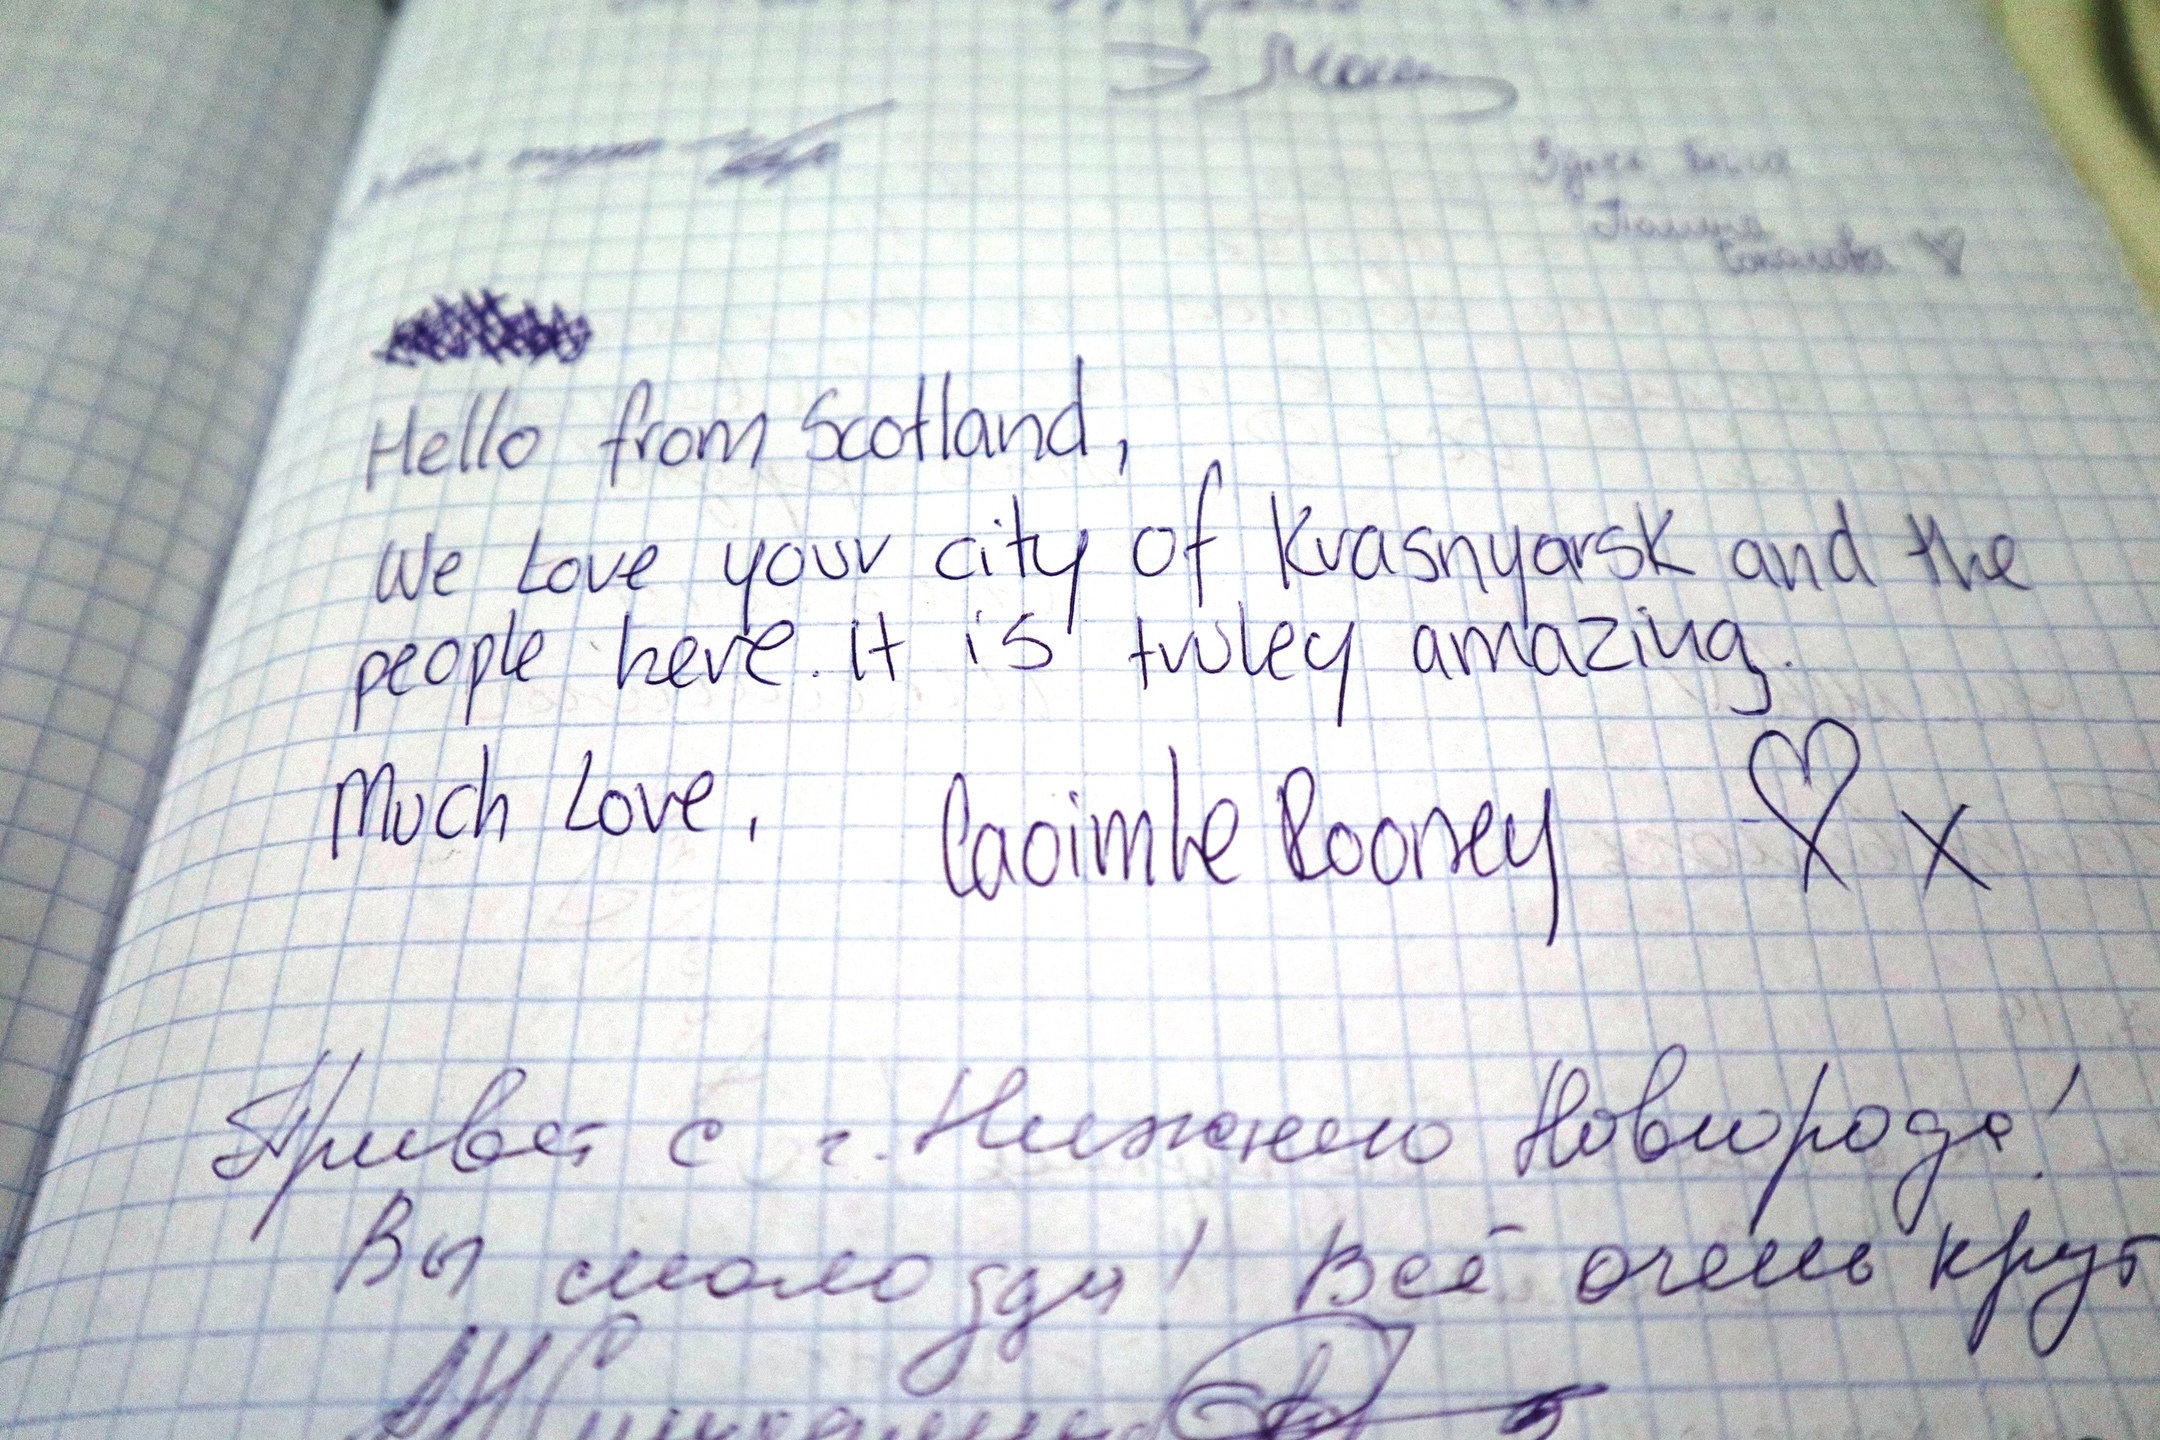 Здесь была
Полина
Соколова
Hello from Scotland,
We Love your city of Krasnyarsk and the
people here. it is truley amazing.
Much Love, Caoimhe Rooney x
Привет с г. Нижнего Новгорода!
Вы молодцы! Всё очень крут